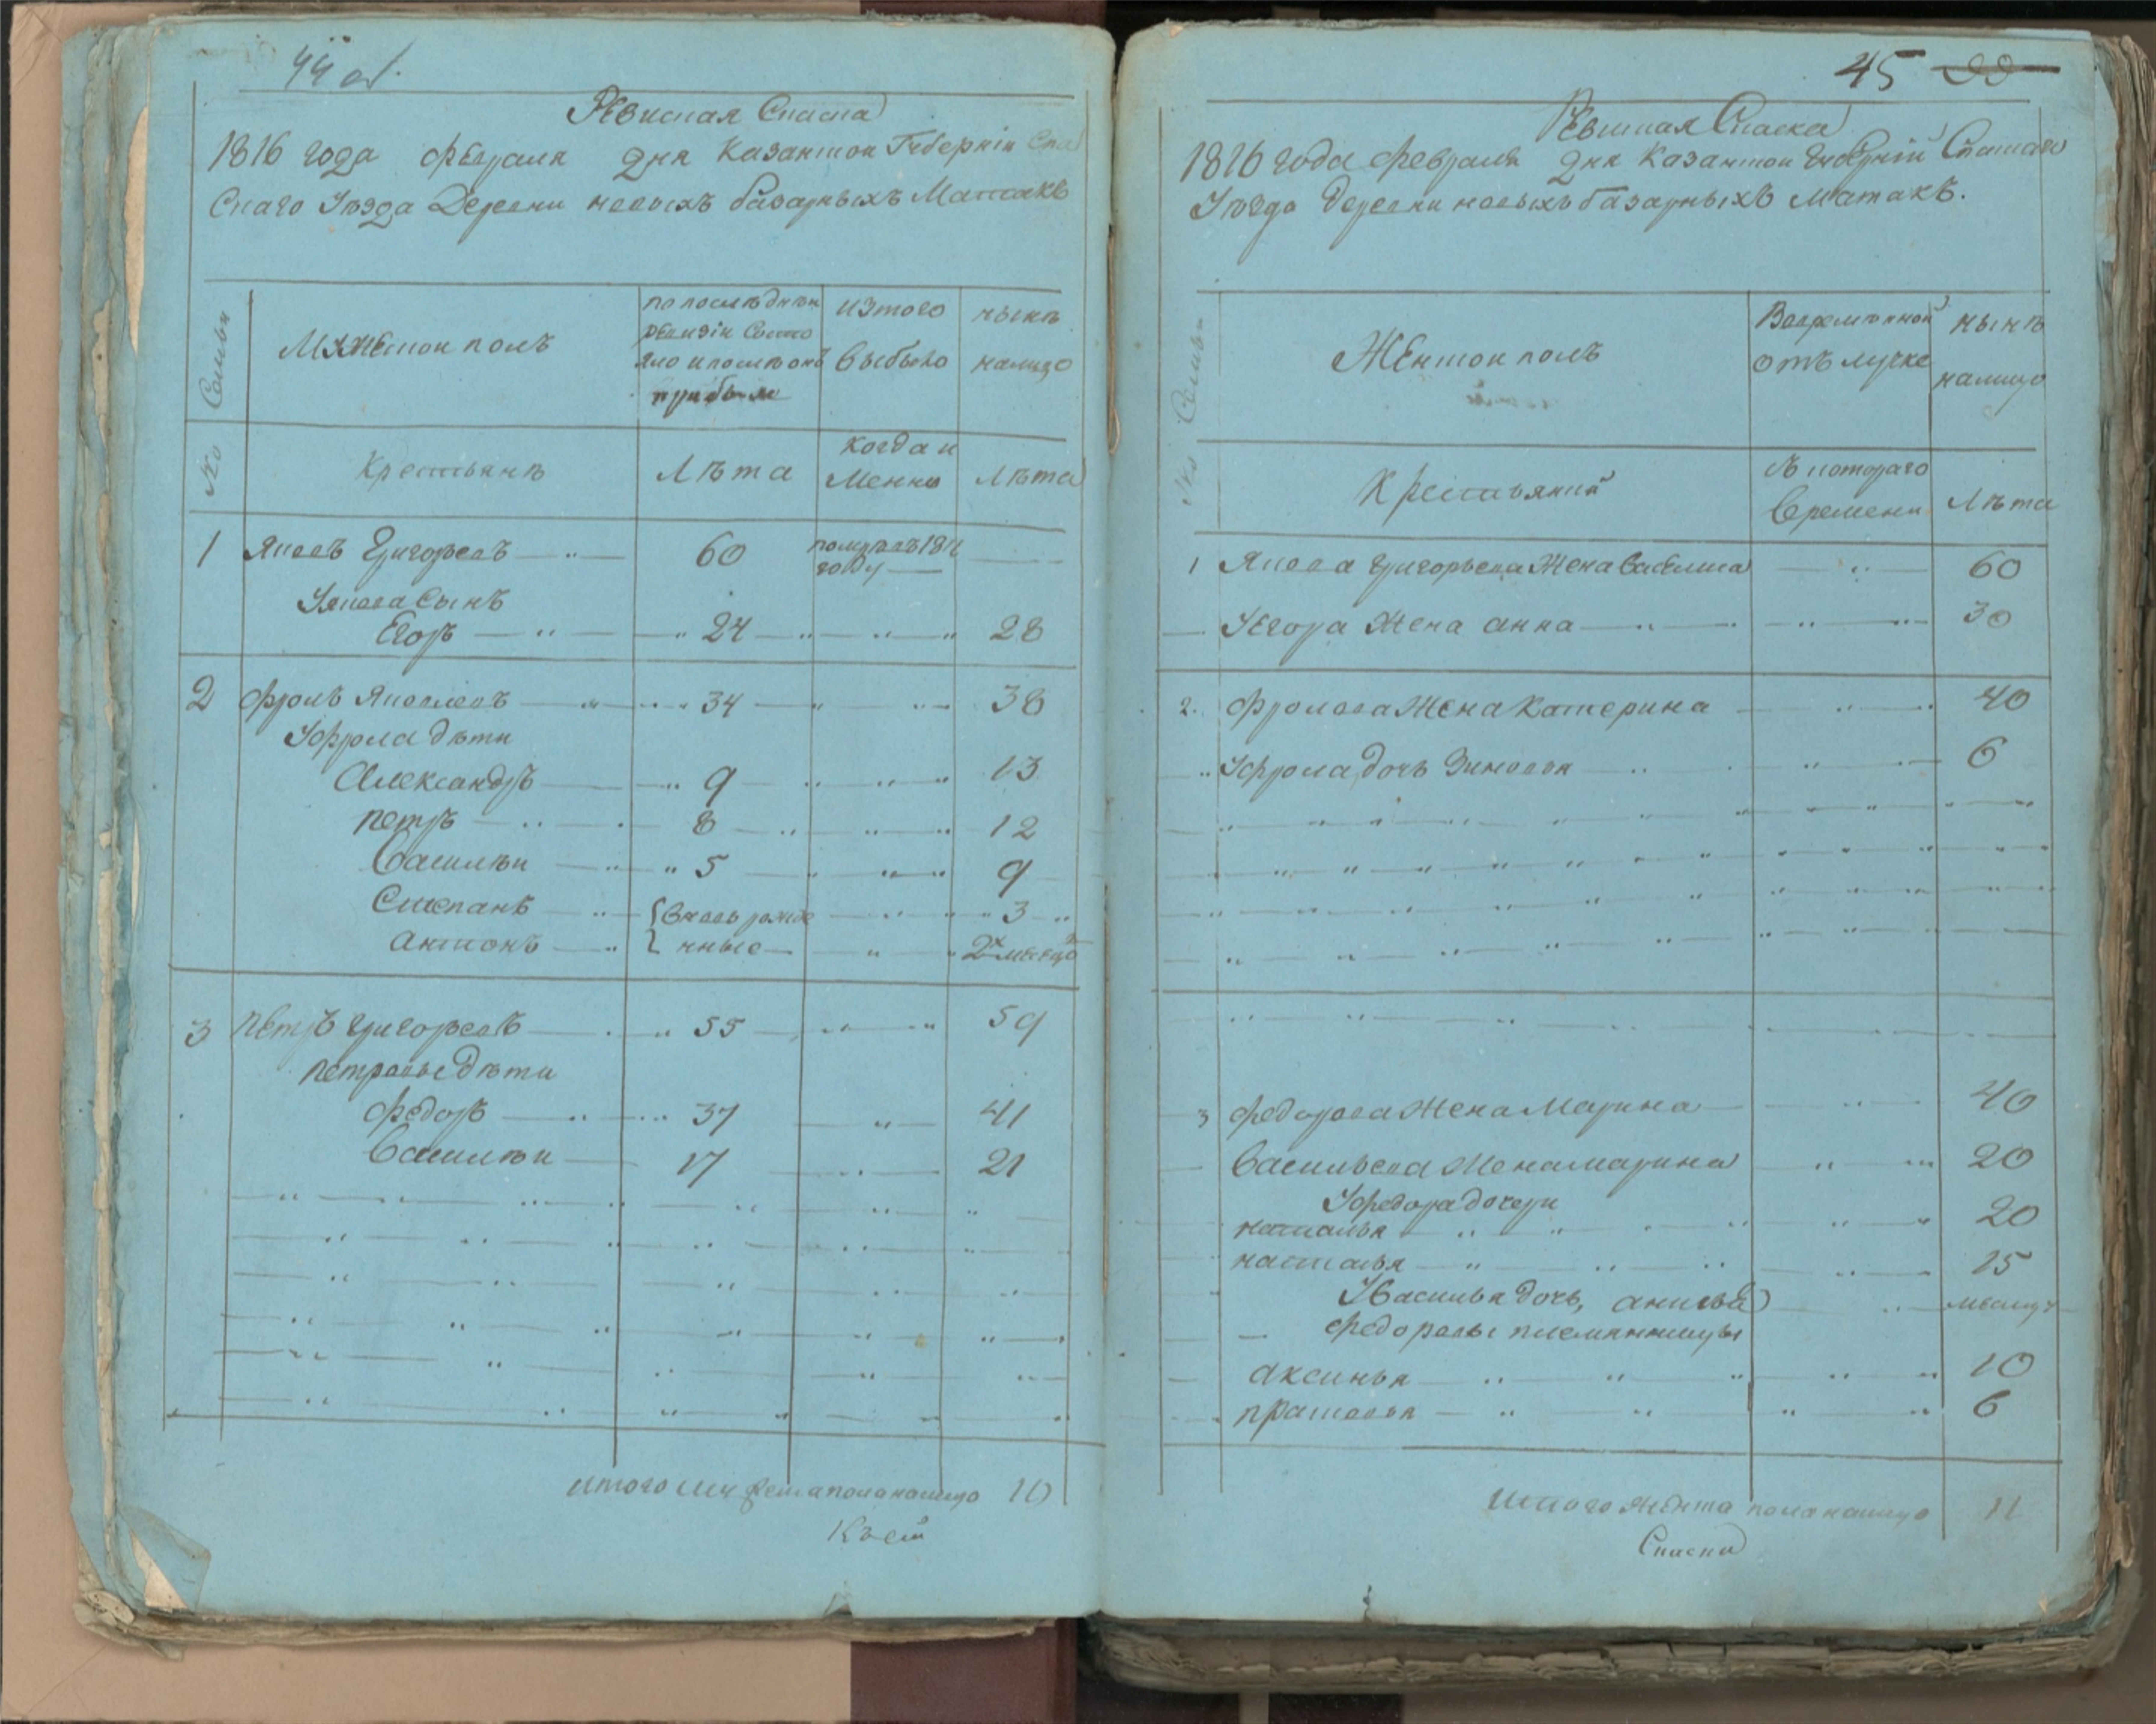 44 об.
Ревиская Скаска
1816 года Февраля дня Казанской Губернии Спа
Скаго Уезда Деревни новыхъ базарныхъ Матакъ
Семьи
Мужескои полъ
по последней
ревизии Состо
яло и после онои
прибыло
изтого
выбыло
ныне
налицо
№
Крестьяне
Лѣта
когда и
Менно
Лѣта
1 Яковъ Григорьевъ 60 померъ 1811
году
Уякова Сынъ
Егоръ 24 28
2 Фролъ Яковлевъ 34 38
Уфрола дѣти
Александръ 9 13
Петръ 8 12
Василѣи 5 9
Степанъ вновь рожде 3
Антонъ нные 2х месецо
3 Петръ Григорьевъ 55 59
Петровы Дѣти
Федоръ 37 41
Василѣи 17 21
Итого мужеска пола налицо 10
Къ сей
45
Ревиская Скаска
1816 года февраля дня Казанской Губернии Спаскаго
Уѣзда Деревни новыхъ базарныхъ Матакъ.
№ Семьи
Женскои полъ
Вовременной
отълучке
ныне
налицо
Крестьянки
Съкотораго
Времени
Лѣта
1 Якова Григорьева Жена Василиса 60
Уегора Жена анна 30
2 Фролова Жена Катерина 40
Уфрола дочь Зиновья 6
3 Федорова Жена Марина 40
Васильева Жена марина 20
Уфедора дочери
наталья 20
настасья 15
Увасилья дочь, анисья месяц
федоровы племянницы
аксинья 10
прасковья 6
Итого женска пола налицо 11
Скаски